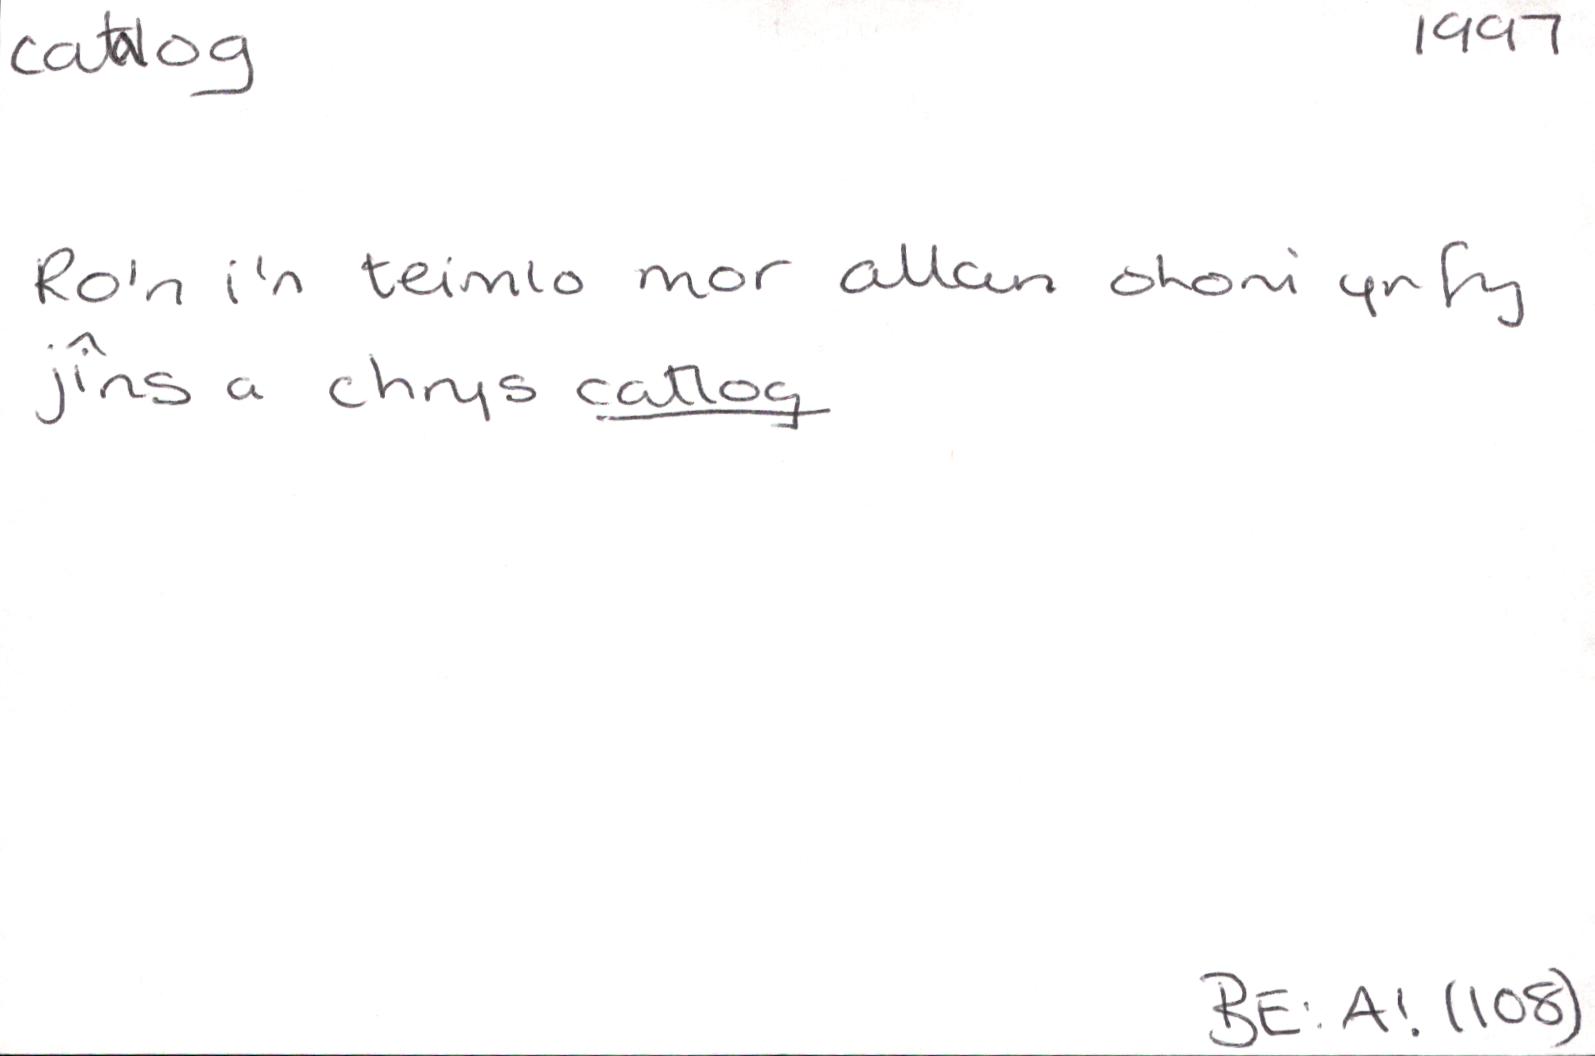 catalog 1997
Ro'n i'n teimlo mor allan ohoni yn fy
jîns a chrys catlog
BE: A! (108)